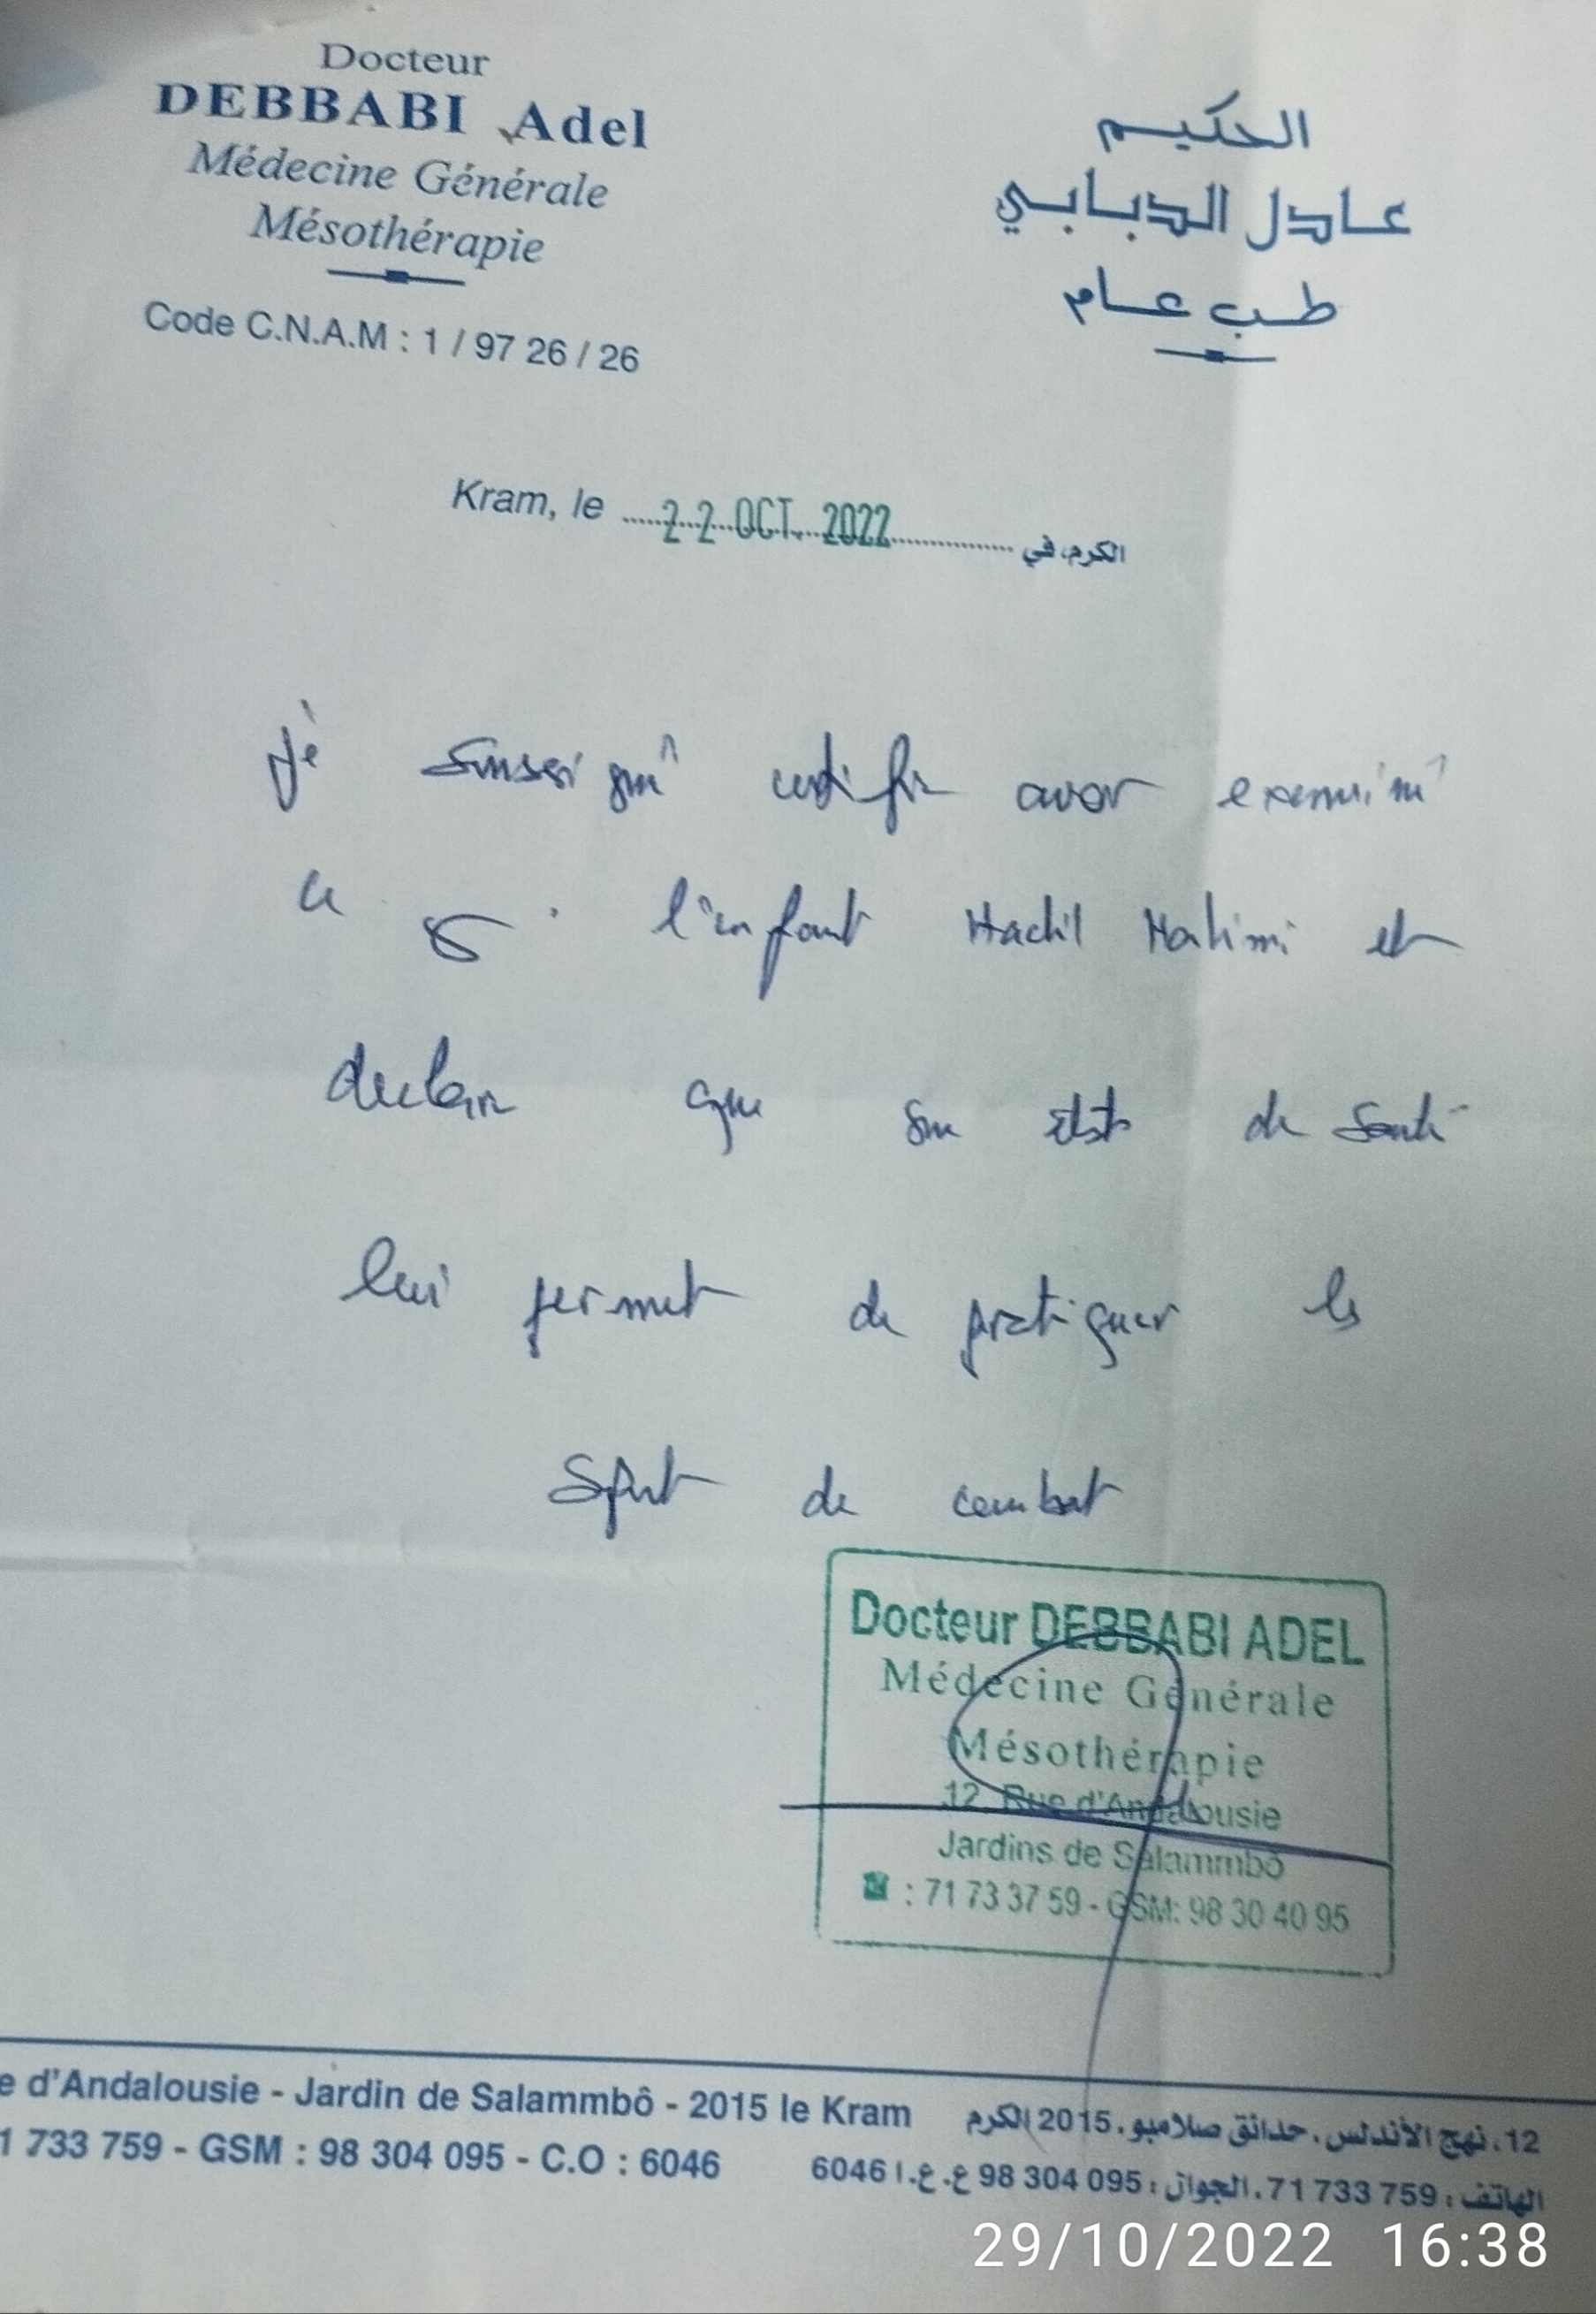 Docteur
DEBBABI Adel
Médecine Générale
Mésothérapie
Code C.N.A.M : 1 / 97 26 / 26
الحكيم
عادل الدبابي
طب عام
Kram, le 22 OCT. 2022 الكرم، في
Je soussigné certifie avoir examiné
ce l'enfant Hadil Halimi et
declare que son état de santé
lui permet de pratiquer le
Sport de combat
Docteur DEBBABI ADEL
Médecine Générale
Mésothérapie
12, Rue d'Andalousie
Jardins de Salammbô
☎ : 71 73 37 59 - GSM: 98 30 40 95
e d'Andalousie - Jardin de Salammbô - 2015 le Kram
1 733 759 - GSM : 98 304 095 - C.O : 6046
12، نهج الأندلس، حدائق صلامبو، 2015 الكرم
الهاتف : 71 733 759، الجوال : 98 304 095 ع.ع.ا 6046
29/10/2022 16:38